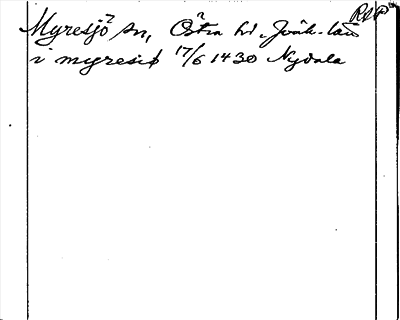 Myresjö sn, Östra hd. Jönk. län
i myresiø 17/6 1430 Nydala